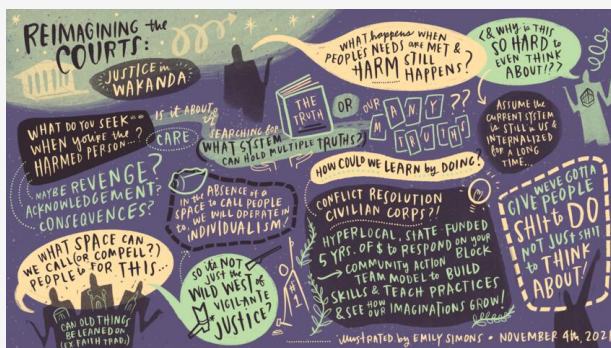 REIMAGINING the
COURTS:
JUSTICE in
WAKANDA
WHAT happens WHEN
PEOPLES NEEDS are MET &
HARM STILL
HAPPENS?
(& WHY is THIS
SO HARD to
EVEN THINK
ABOUT!??
WHAT DO YOU SEEK
WHEN YOU'RE the
HARMED PERSON...?
MAYBE REVENGE?
ACKNOWLEDGEMENT?
CONSEQUENCES?
IS it ABOUT
CARE
SEARCHING for
THE
TRUTH
OR OUR
MANY
TRUTHS
??
WHAT SYSTEM
CAN HOLD MULTIPLE TRUTHS?
ASSUME the
CURRENT SYSTEM
is STILL in US &
INTERNALIZED
FOR A LONG
TIME...
HOW COULD WE LEARN by DOING?
IN the
ABSENCE of a
SPACE to CALL PEOPLE
to WE WILL OPERATE IN
INDIVIDUALISM!
CONFLICT RESOLUTION
CIVILIAN CORPS?!
HYPERLOCAL, STATE FUNDED
5 YRS. OF $ to RESPOND on YOUR
BLOCK
COMMUNITY ACTION
TEAM MODEL to BUILD
SKILLS & TEACH PRACTICES
& SEE HOW OUR IMAGINATIONS GROW!
WE'VE GOTTA
GIVE PEOPLE
SHIT to DO
NOT JUST SHIT
to THINK
ABOUT!
WHAT SPACE CAN
WE CALL (OR COMPELL?)
PEOPLE to FOR THIS...
CAN OLD THINGS
BE LEANED on
(EX FAITH TRAD.)
SO its NOT
JUST the
WILD WEST of
VIGILANTE
JUSTICE?
#1
illustrated by EMILY SIMONS • NOVEMBER 4th, 202